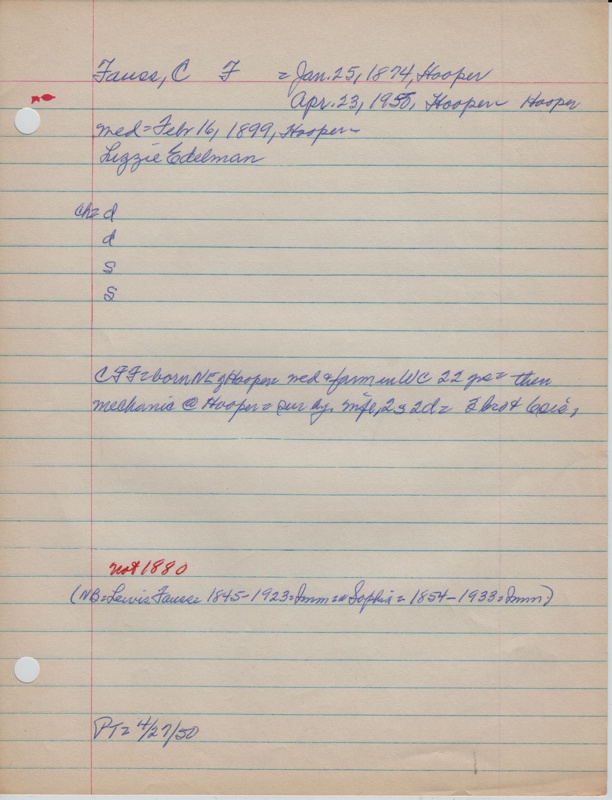 Fauss, C F = Jan. 25, 1874, Hooper
Apr. 23, 1950, Hooper Hooper
med = Febr 16, 1899, Hooper =
Lizzie Edelman
ch = d
d
s
s
CFF = born NE of Hooper = med & farm in WC 22 yrs = then
mechanic @ Hooper = sur by wife, 2s 2d = 2 bro & 6 sis,
not 1880
(NB = Lewis Fauss = 1845-1923 = Imm = Sophia = 1854-1933 = Imm)
PT = 4/27/50